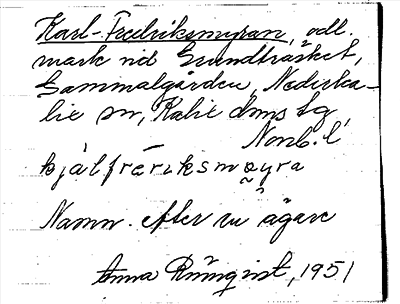 Karl-Fredriksmyran, odl.
mark vid Grundträsket,
Gammalgården, Nederka-
lix sn, Kalix dms tg
Norrb. l.
kjälfrēriksmoyra
Namn. efter en ägare
Anna Rönnqvist, 1951